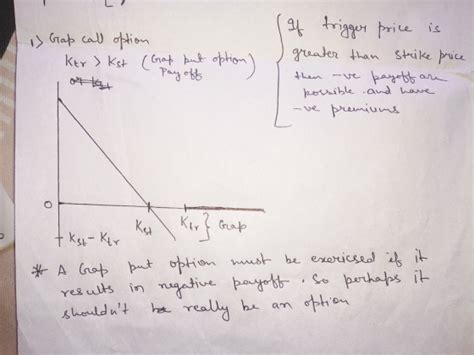 1) Gap call option
Ktr > Kst (Gap put option)
Payoff
If trigger price is
greater than strike price
then -ve payoff are
possible and have
-ve premiums
0
Kst
Ktr } Gap
Kst - Ktr
* A Gap put option must be exericsed if it
results in negative payoff. So perhaps it
shouldn't really be an option